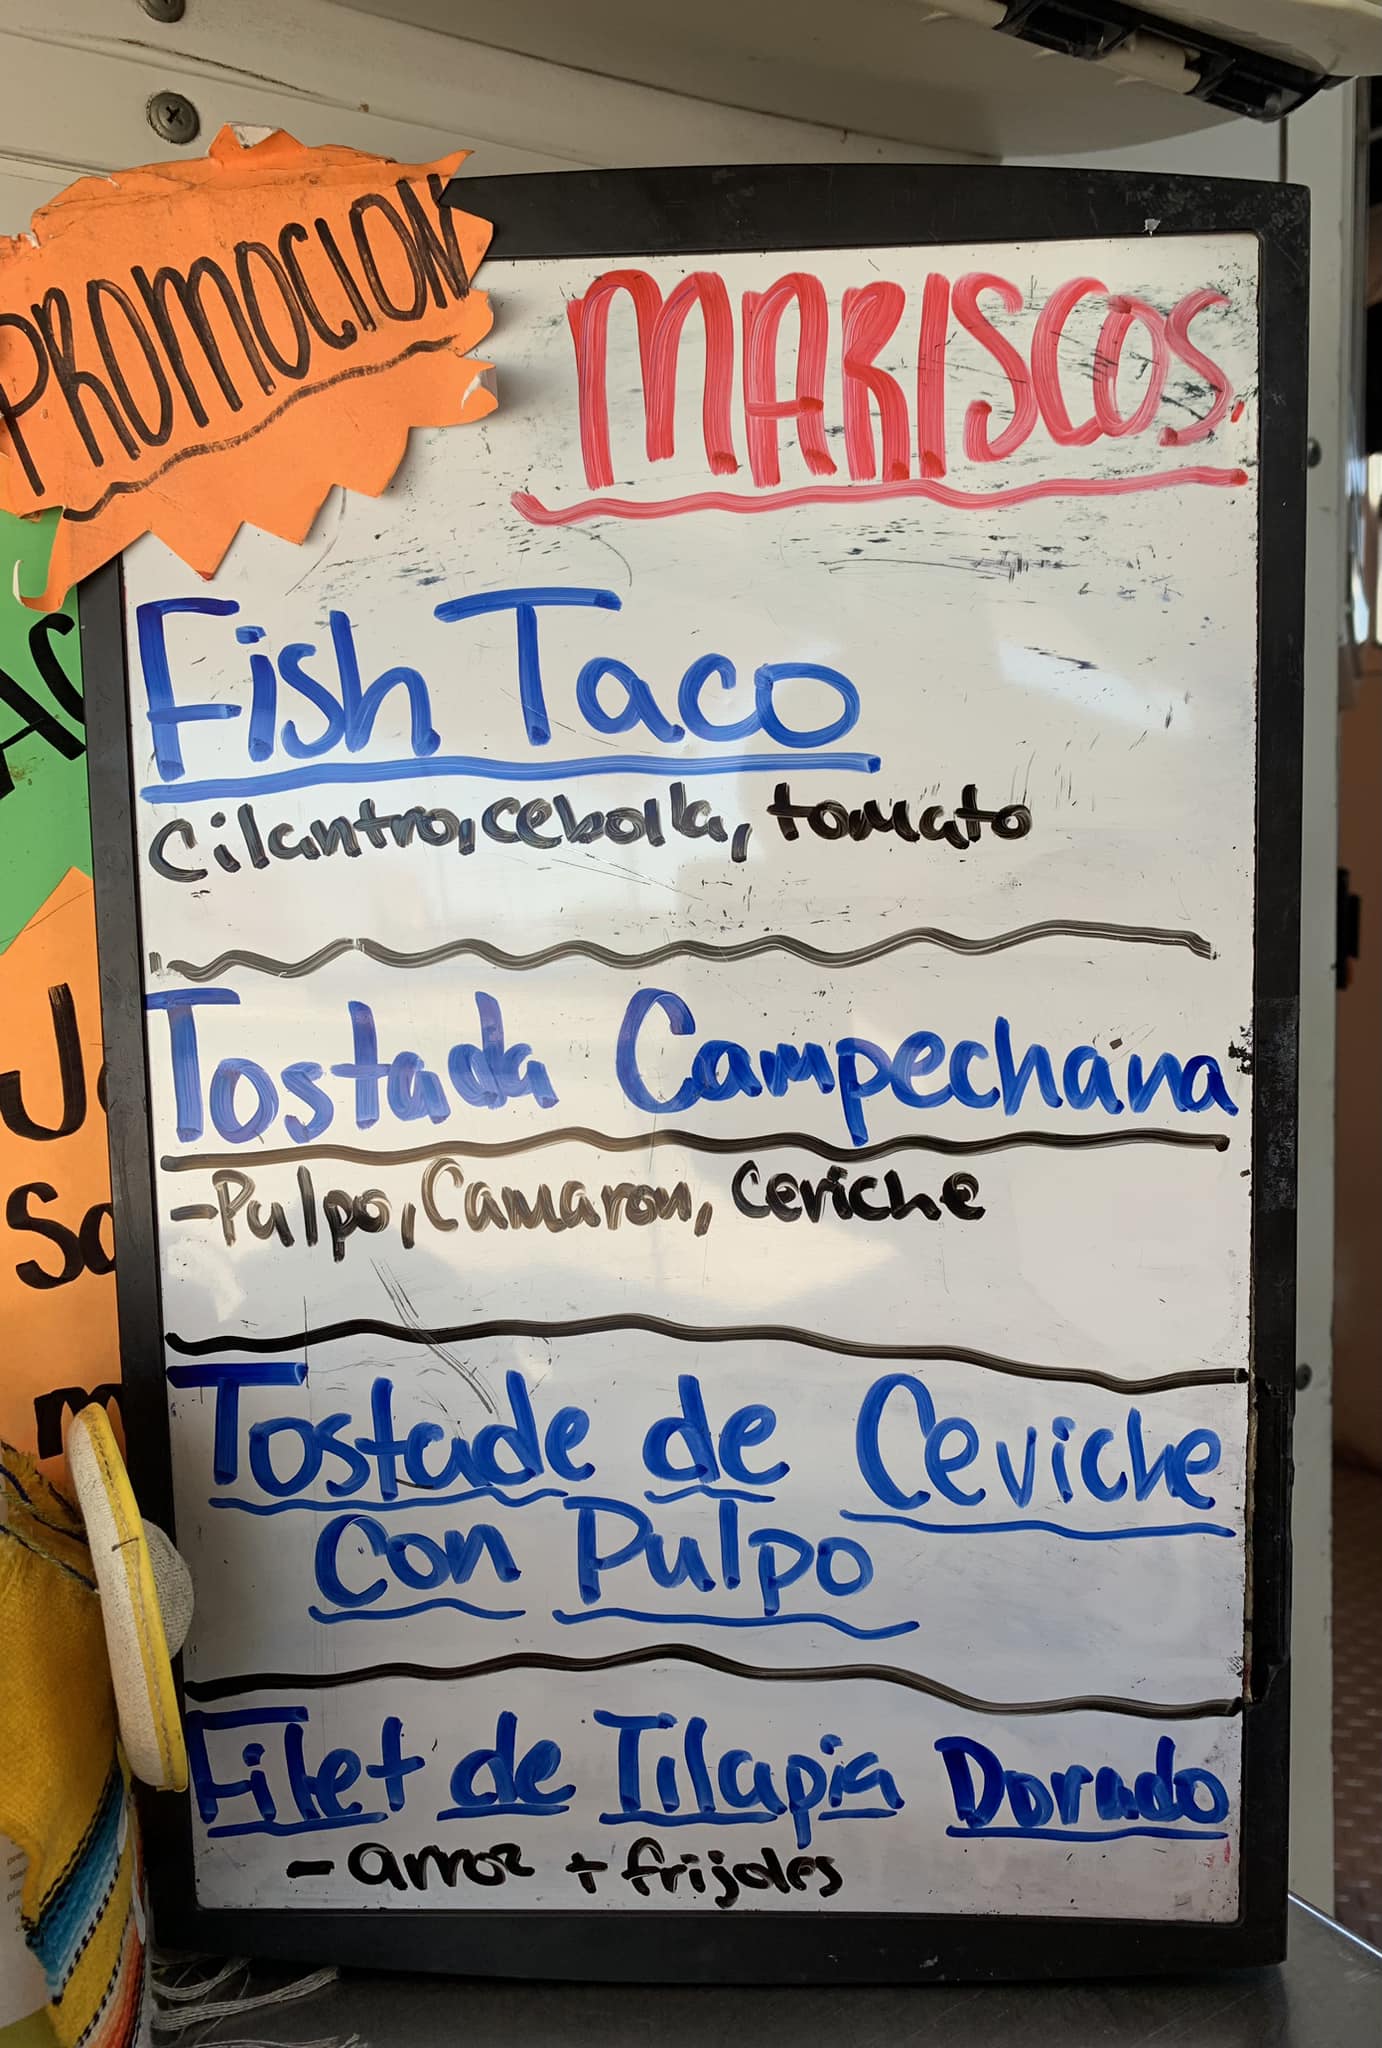 PROMOCION
MARISCOS.
Fish Taco
Cilantro, cebolla, tomato
Tostada Campechana
- Pulpo, Camaron, Ceviche
Tostade de Ceviche
con Pulpo
Filet de Tilapia Dorado
- arroz + frijoles